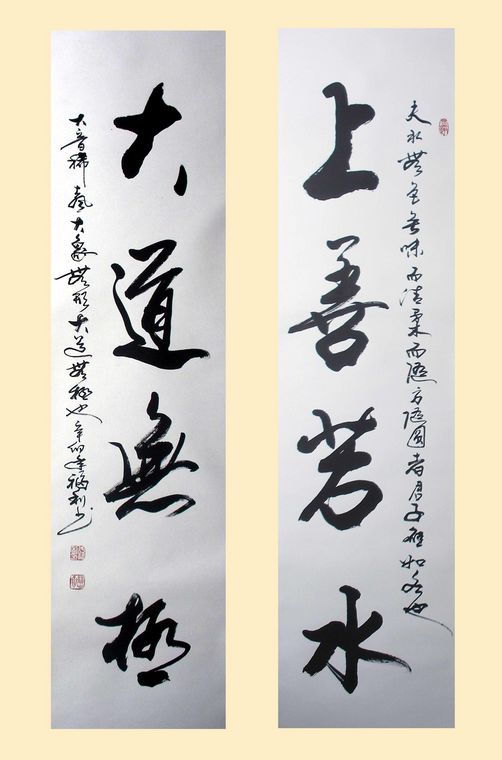 夫水無色無味而清柔而隨方隨圓者君子應如也
上善若水
大道無極
大音稀聲大象無形大道無極也辛卯年福利书